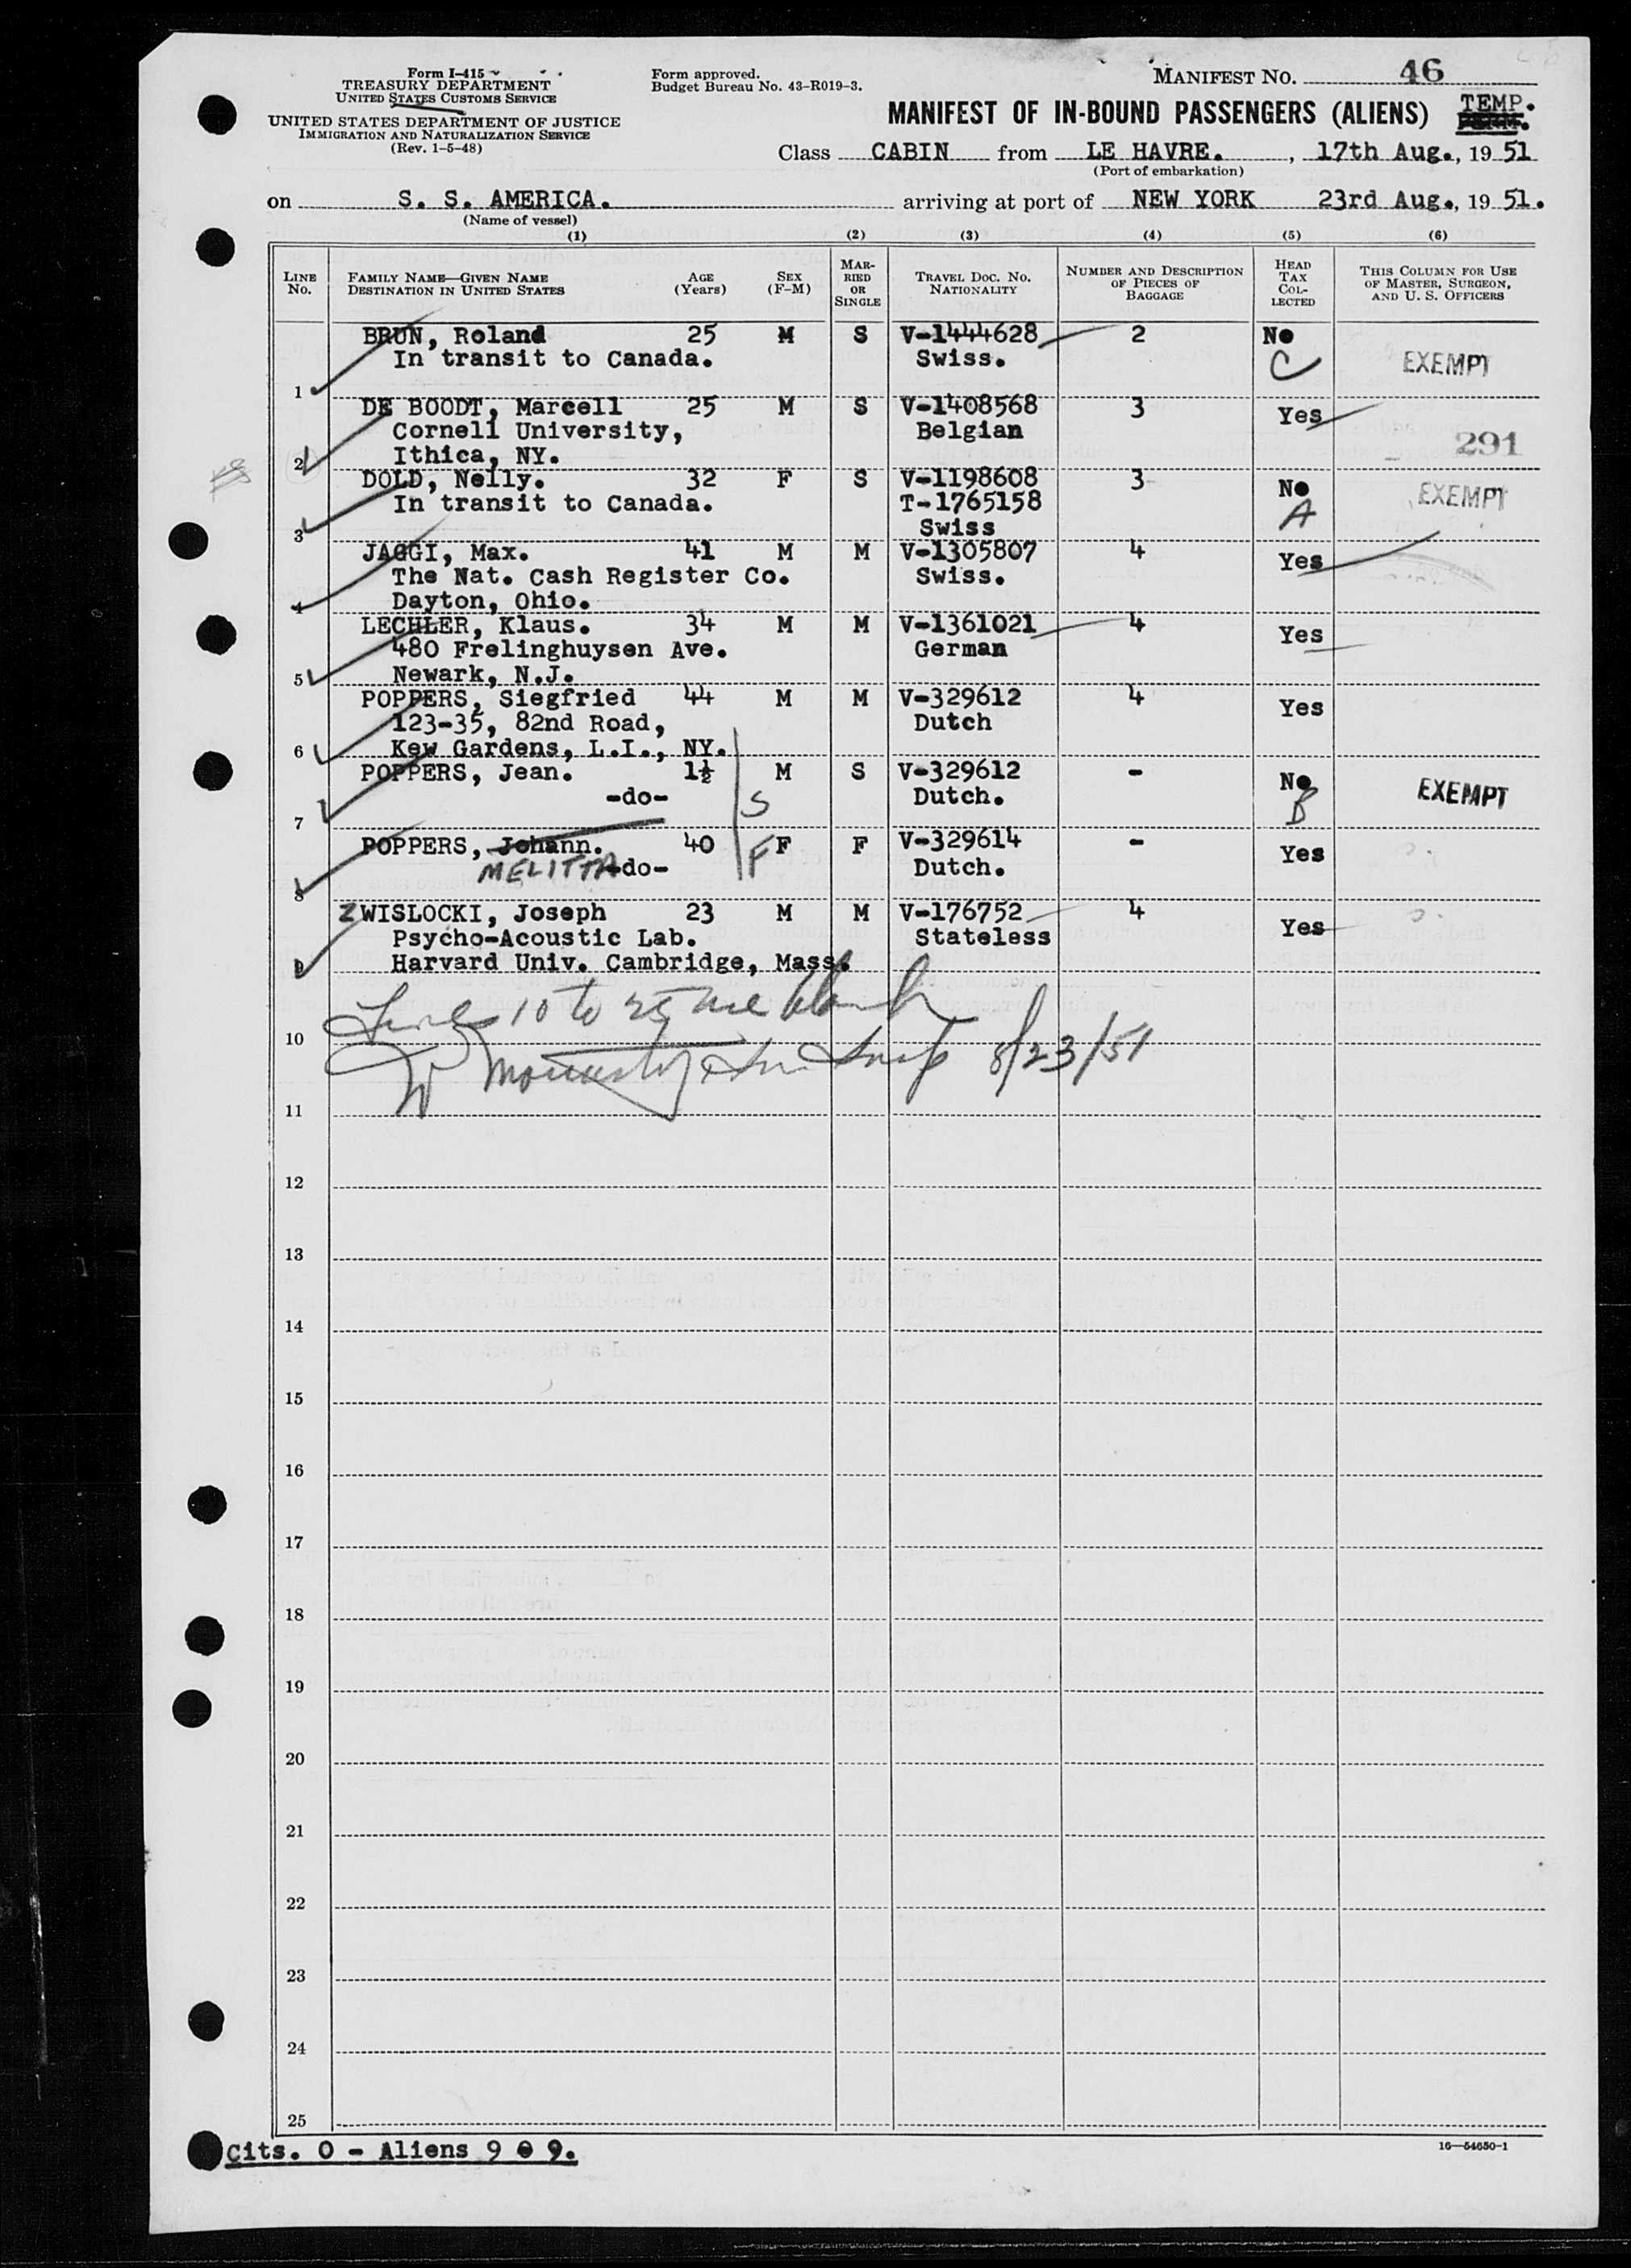 Form I-415
TREASURY DEPARTMENT
UNITED STATES CUSTOMS SERVICE
UNITED STATES DEPARTMENT OF JUSTICE
IMMIGRATION AND NATURALIZATION SERVICE
(Rev. 1-5-48)
Form approved.
Budget Bureau No. 43-R019-3.
MANIFEST NO. 46
MANIFEST OF IN-BOUND PASSENGERS (ALIENS) TEMP.
Class CABIN from LE HAVRE. , 17th Aug., 19 51
(Port of embarkation)
on S. S. AMERICA. arriving at port of NEW YORK 23rd Aug., 19 51.
(Name of vessel)
(1) (2) (3) (4) (5) (6)
LINE NO. FAMILY NAME—GIVEN NAME DESTINATION IN UNITED STATES AGE (Years) SEX (F-M) MARRIED OR SINGLE TRAVEL DOC. NO. NATIONALITY NUMBER AND DESCRIPTION OF PIECES OF BAGGAGE HEAD TAX COLLECTED THIS COLUMN FOR USE OF MASTER, SURGEON, AND U. S. OFFICERS
BRUN, Roland 25 M S V-1444628 2 No
In transit to Canada. Swiss. C EXEMPT
1
DE BOODT, Marcell 25 M S V-1408568 3 Yes
Cornell University, Belgian
2 Ithica, NY. 291
DOLD, Nelly. 32 F S V-1198608 3 No
In transit to Canada. T-1765158 A EXEMPT
3 Swiss
JAGGI, Max. 41 M M V-1305807 4 Yes
The Nat. Cash Register Co. Swiss.
4 Dayton, Ohio.
LECHLER, Klaus. 34 M M V-1361021 4 Yes
480 Frelinghuysen Ave. German
5 Newark, N.J.
POPPERS, Siegfried 44 M M V-329612 4 Yes
123-35, 82nd Road, Dutch
6 Kew Gardens, L.I., NY.
POPPERS, Jean. 1½ M S V-329612 - No
-do- S Dutch. B EXEMPT
7
POPPERS, Johann. 40 F F F V-329614 - Yes
MELITTA -do- Dutch.
8
ZWISLOCKI, Joseph 23 M M V-176752 4 Yes
Psycho-Acoustic Lab. Stateless
9 Harvard Univ. Cambridge, Mass.
Lines 10 to 25 are blank
10
8/23/51
11
12
13
14
15
16
17
18
19
20
21
22
23
24
25
Cits. 0 - Aliens 9 @ 9.
16—54650-1